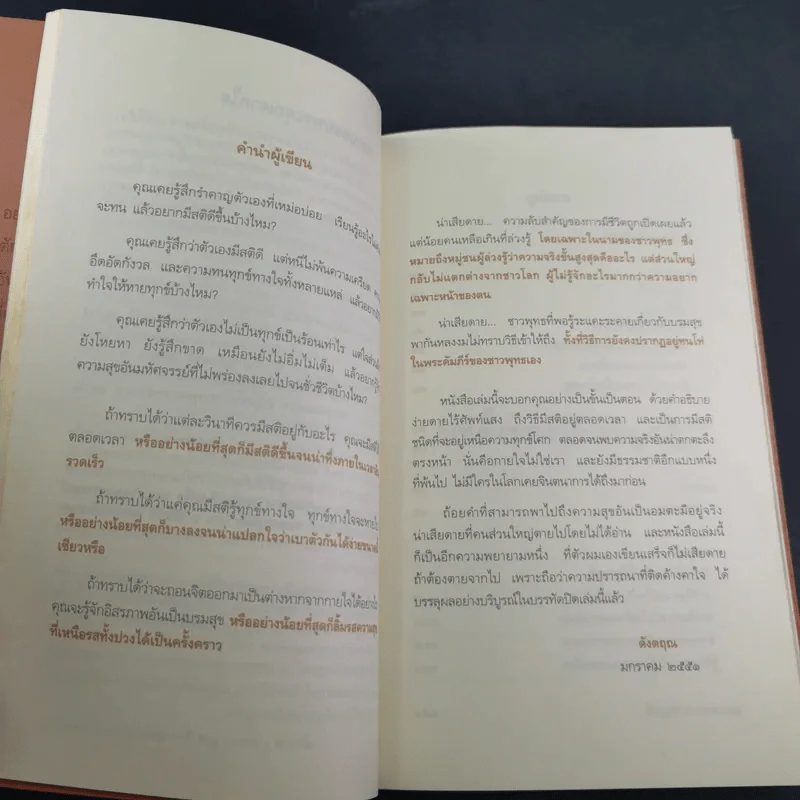 คำนำผู้เขียน
คุณเคยรู้สึกรำคาญตัวเองที่เหม่อบ่อย เรียนรู้อะไร
จะทน แล้วอยากมีสติดีขึ้นบ้างไหม?
คุณเคยรู้สึกว่าตัวเองมีสติดี แต่หนีไม่พ้นความเครียด
อึดอัดกังวล และความทนทุกข์ทางใจทั้งหลายแหล่ แล้วอยาก
ทำให้หายทุกข์บ้างไหม?
คุณเคยรู้สึกว่าตัวเองไม่เป็นทุกข์เป็นร้อนเท่าไร แต่
ยังโหยหา ยังรู้สึกขาด เหมือนยังไม่อิ่มไม่เต็ม แล้วอยาก
ความสุขอันมหัศจรรย์ที่ไม่พร่องลงเลยไปจนชั่วชีวิตบ้างไหม?
ถ้าทราบได้ว่าแต่ละวินาทีควรมีสติอยู่กับอะไร คุณจะมีสติ
ตลอดเวลา หรืออย่างน้อยที่สุดก็มีสติดีขึ้นจนน่าทึ่งภายใน
รวดเร็ว
ถ้าทราบได้ว่าแค่คุณมีสติรู้ทุกข์ทางใจ ทุกข์ทางใจจะหาย
หรืออย่างน้อยที่สุดก็บางลงจนน่าแปลกใจว่าเบาตัวกันได้ง่ายขนาดนี้
เชียวหรือ
ถ้าทราบได้ว่าจะถอนจิตออกมาเป็นต่างหากจากกายใจได้อย่างไร
คุณจะรู้จักอิสรภาพอันเป็นบรมสุข หรืออย่างน้อยที่สุดก็ลิ้มรสความสุข
ที่เหนือรสทั้งปวงได้เป็นครั้งคราว
น่าเสียดาย... ความลับสำคัญของการมีชีวิตถูกเปิดเผยแล้ว
แต่น้อยคนเหลือเกินที่ล่วงรู้ โดยเฉพาะในนามของชาวพุทธ ซึ่ง
หมายถึงหมู่ชนผู้ล่วงรู้ว่าความจริงขั้นสูงสุดคืออะไร แต่ส่วนใหญ่
กลับไม่แตกต่างจากชาวโลก ผู้ไม่รู้จักอะไรมากกว่าความอยาก
เฉพาะหน้าของตน
น่าเสียดาย... ชาวพุทธที่พอรู้ระแคะระคายเกี่ยวกับบรมสุข
พากันหลงงมไม่ทราบวิธีเข้าให้ถึง ทั้งที่วิธีการยังคงปรากฏอยู่ทนโท่
ในพระคัมภีร์ของชาวพุทธเอง
หนังสือเล่มนี้จะบอกคุณอย่างเป็นขั้นเป็นตอน ด้วยคำอธิบาย
ง่ายดายไร้ศัพท์แสง ถึงวิธีมีสติอยู่ตลอดเวลา และเป็นการมีสติ
ชนิดที่จะอยู่เหนือความทุกข์โศก ตลอดจนพบความจริงอันน่าตกตะลึง
ตรงหน้า นั่นคือกายใจไม่ใช่เรา และยังมีธรรมชาติอีกแบบหนึ่ง
ที่พ้นไป ไม่มีใครในโลกเคยจินตนาการได้ถึงมาก่อน
ถ้อยคำที่สามารถพาไปถึงความสุขอันเป็นอมตะมีอยู่จริง
น่าเสียดายที่คนส่วนใหญ่ตายไปโดยไม่ได้อ่าน และหนังสือเล่มนี้
ก็เป็นอีกความพยายามหนึ่ง ที่ตัวผมเองเขียนเสร็จก็ไม่เสียดาย
ถ้าต้องตายจากไป เพราะถือว่าความปรารถนาที่ติดค้างคาใจ ได้
บรรลุผลอย่างบริบูรณ์ในบรรทัดปิดเล่มนี้แล้ว
ดังตฤณ
มกราคม ๒๕๕๑